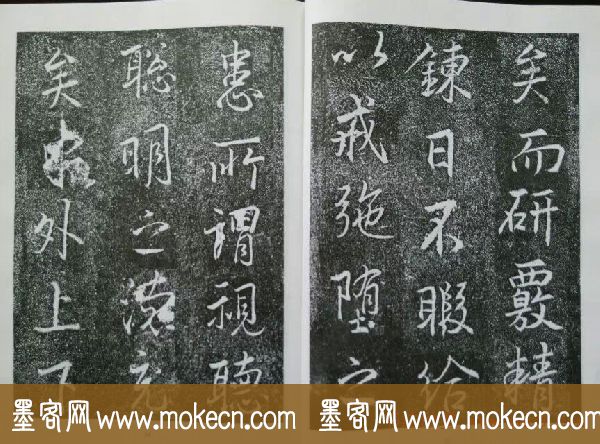 矣而研覈精
鍊日不暇給
以戒弛堕之
患所謂視聽
聡明之德
矣外上下
墨客网 www.mokecn.com
墨客网 www.mokecn.com